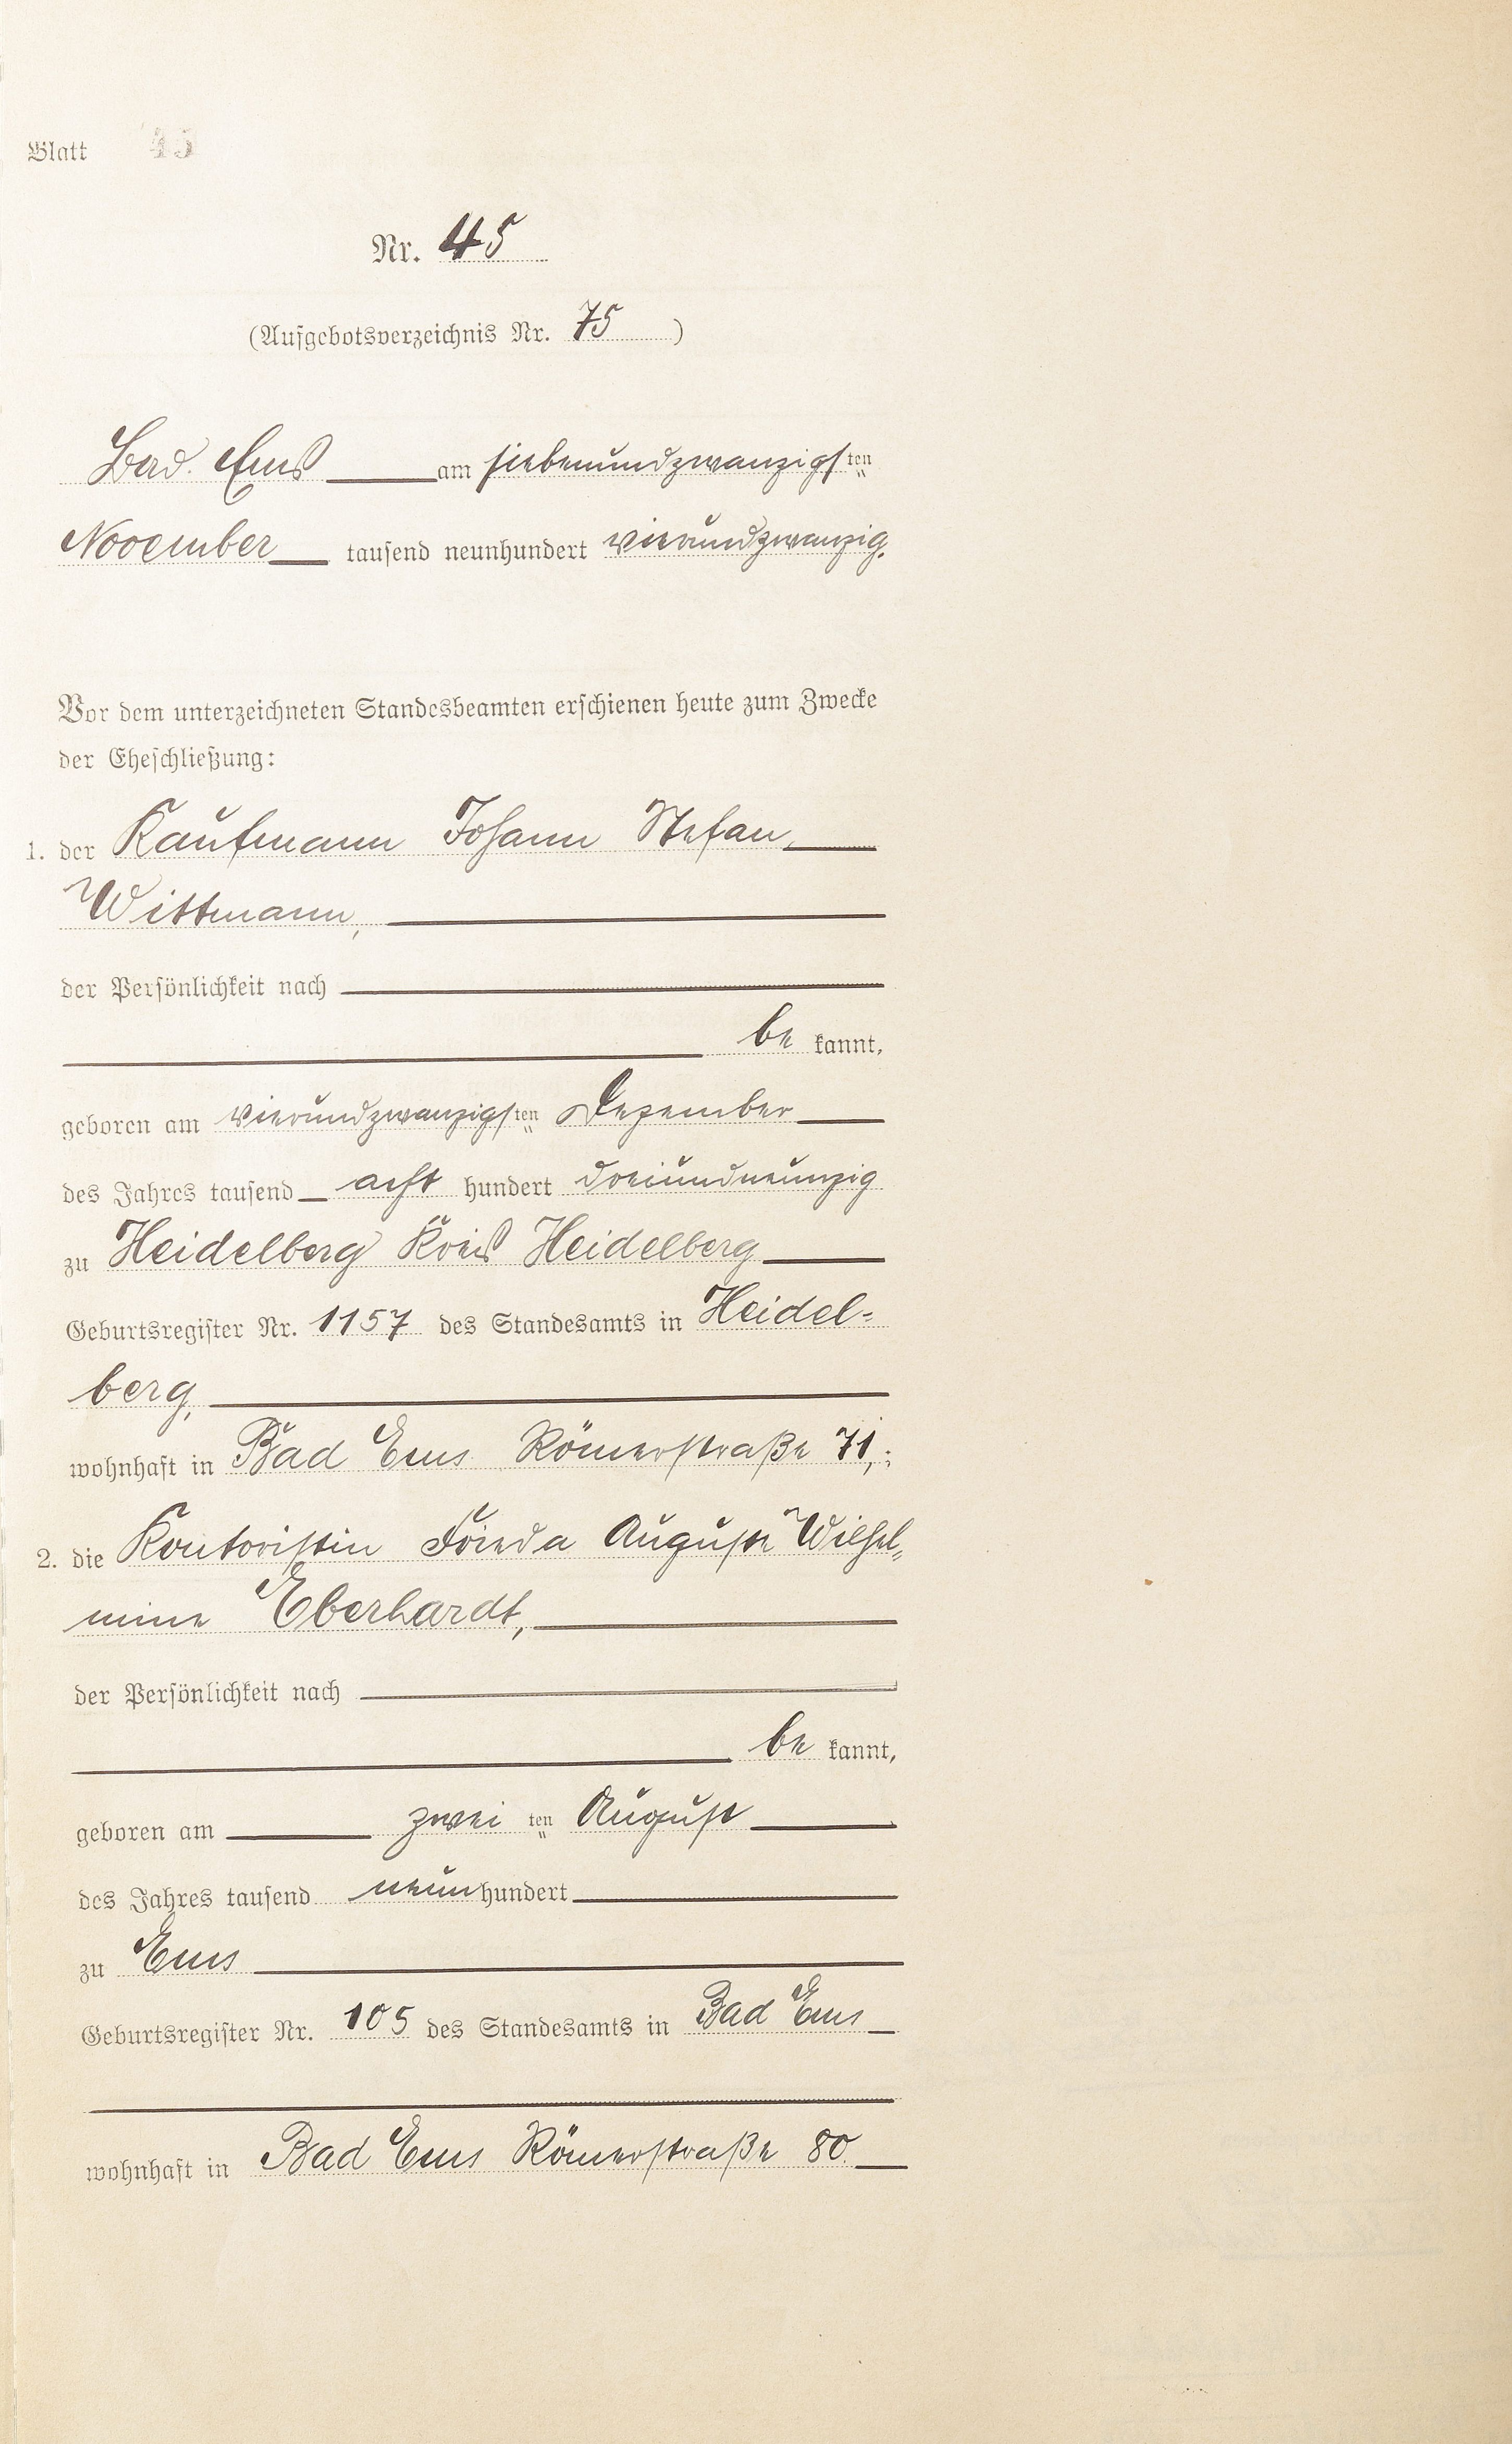 Blatt 45
Nr. 45
(Aufgebotsverzeichnis Nr. 75)
Bad Ems am siebenundzwanzigsten
November tausend neunhundert vierundzwanzig.
Vor dem unterzeichneten Standesbeamten erschienen heute zum Zwecke
der Eheschließung:
1. der Kaufmann Johann Stefan
Wittmann,
der Persönlichkeit nach
be kannt,
geboren am vierundzwanzigsten Dezember
des Jahres tausend acht hundert dreiundneunzig
zu Heidelberg Kreis Heidelberg
Geburtsregister Nr. 1157 des Standesamts in Heidel-
berg,
wohnhaft in Bad Ems Römerstraße 71,;
2. die Kontoristin Frieda Auguste Wilhel-
mine Eberhardt,
der Persönlichkeit nach
be kannt,
geboren am zwei ten August
des Jahres tausend neun hundert
zu Ems
Geburtsregister Nr. 105 des Standesamts in Bad Ems
wohnhaft in Bad Ems Römerstraße 80.